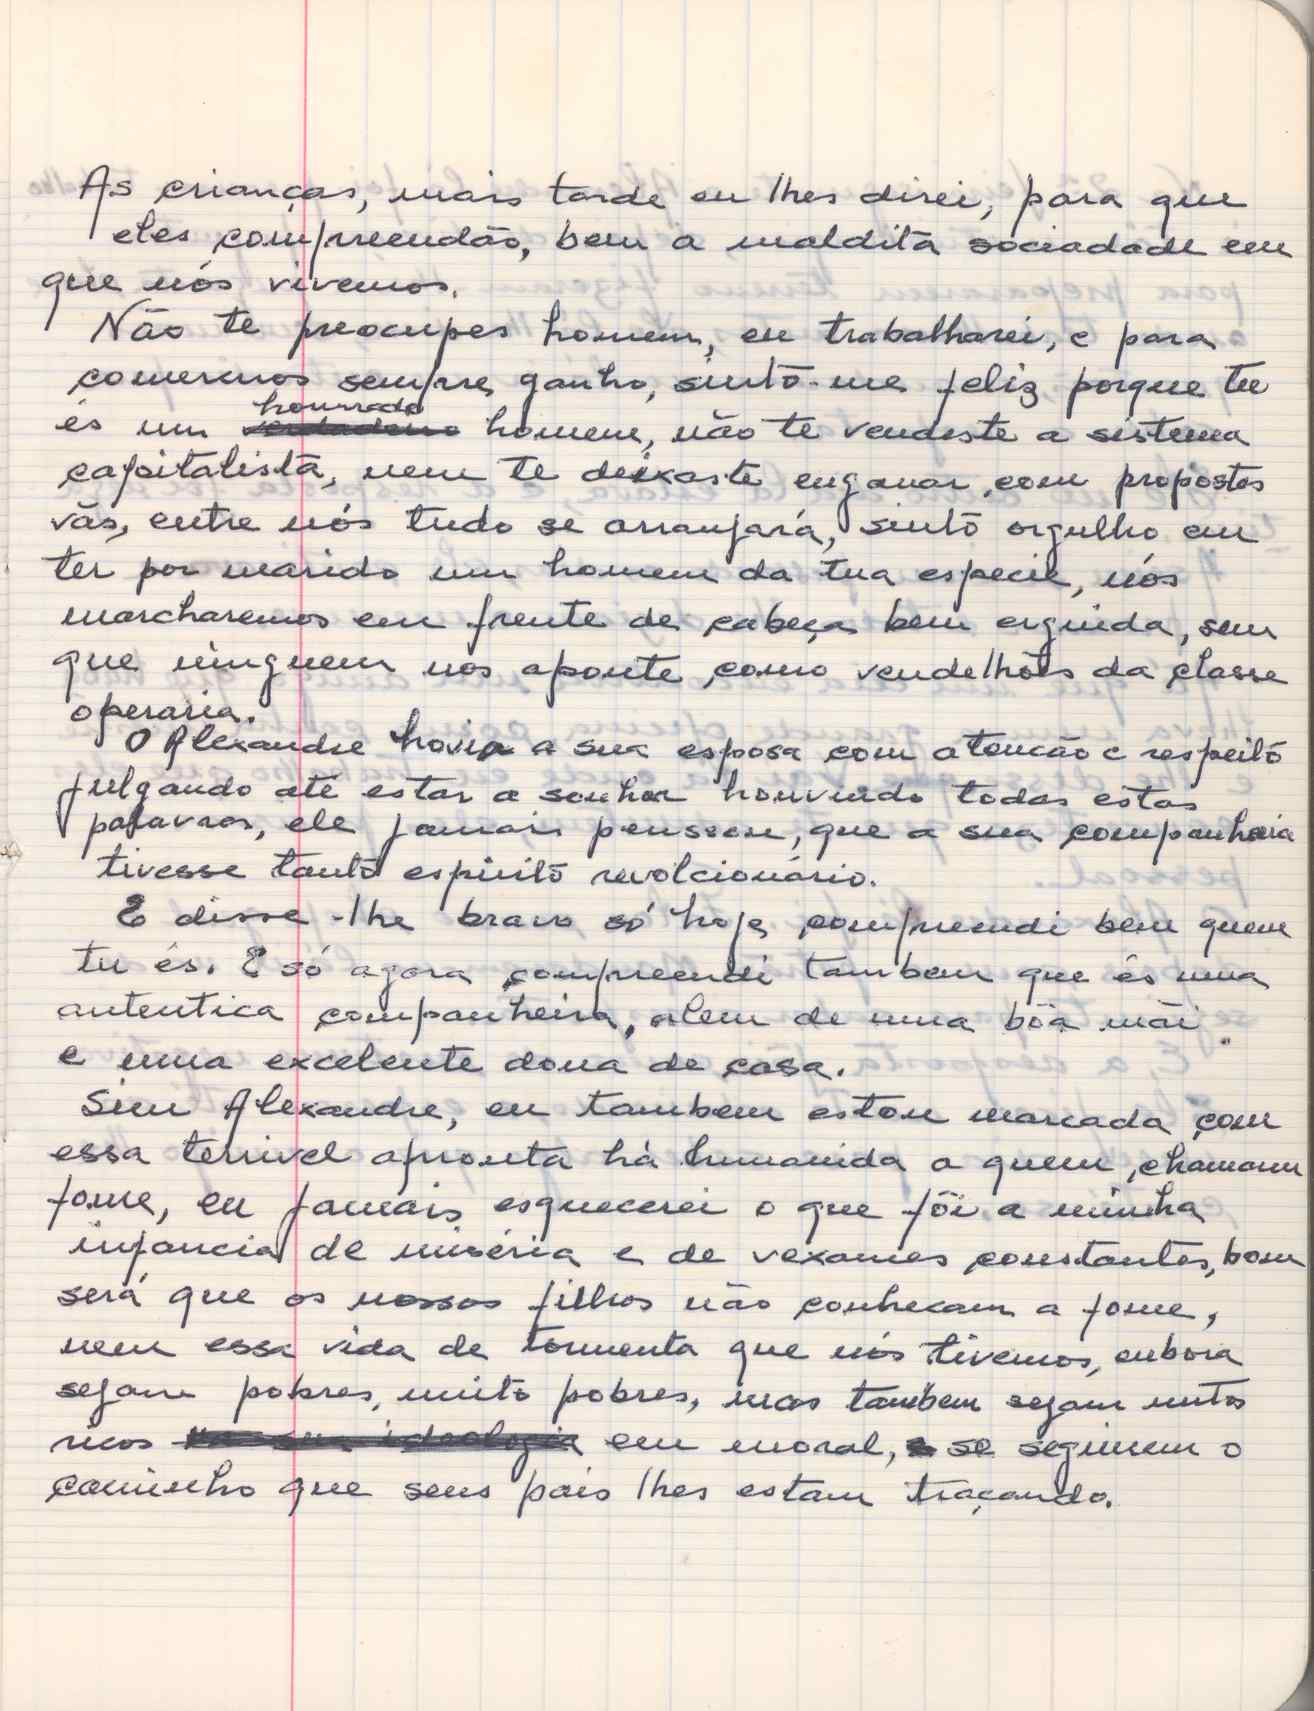 As crianças, mais tarde eu lhes direi, para que
eles compreendão, bem a maldita sociadade em
que nós vivemos.
Não te preocupes homem, eu trabalharei, e para
comermos sempre ganho, sinto-me feliz porque tu
honrrado
és um homem, não te vendeste a sistema
capitalista, nem te deixaste enganar, com propostas
vãs, entre nós tudo se arranjará, sinto orgulho em
ter por marido um homem da tua especie, nós
marcharemos em frente de cabeça bem erguida, sem
que ninguem nos aponte como vendelhões da classe
operaria.
O Alexandre hovia a sua esposa com atencão e respeito
julgando até estar a sonhar houvindo todas estas
palavras, ele jamais penssou, que a sua companheia
tivesse tanto espirito revolcionário.
E disse-lhe bravo só hoje compreendi bem quem
tu és. E só agora compreendi tambem que és uma
autentica companheira, alem de uma bôa mãi
e uma excelente dona de casa.
Sim Alexandre, eu tambem estou marcada com
essa terrivel afronta há humanida a quem chamam
fome, eu jamais esquecerei o que fôi a minha
infancia de miséria e de vexames constantes, bom
será que os nossos filhos não conhecam a fome,
nem essa vida de tormenta que nós tivemos, enbora
sejam pobres, muito pobres, mas tambem sejam muitos
ricos na sua ideologia em moral, se seguirem o
caminho que seus pais lhes estam traçando.